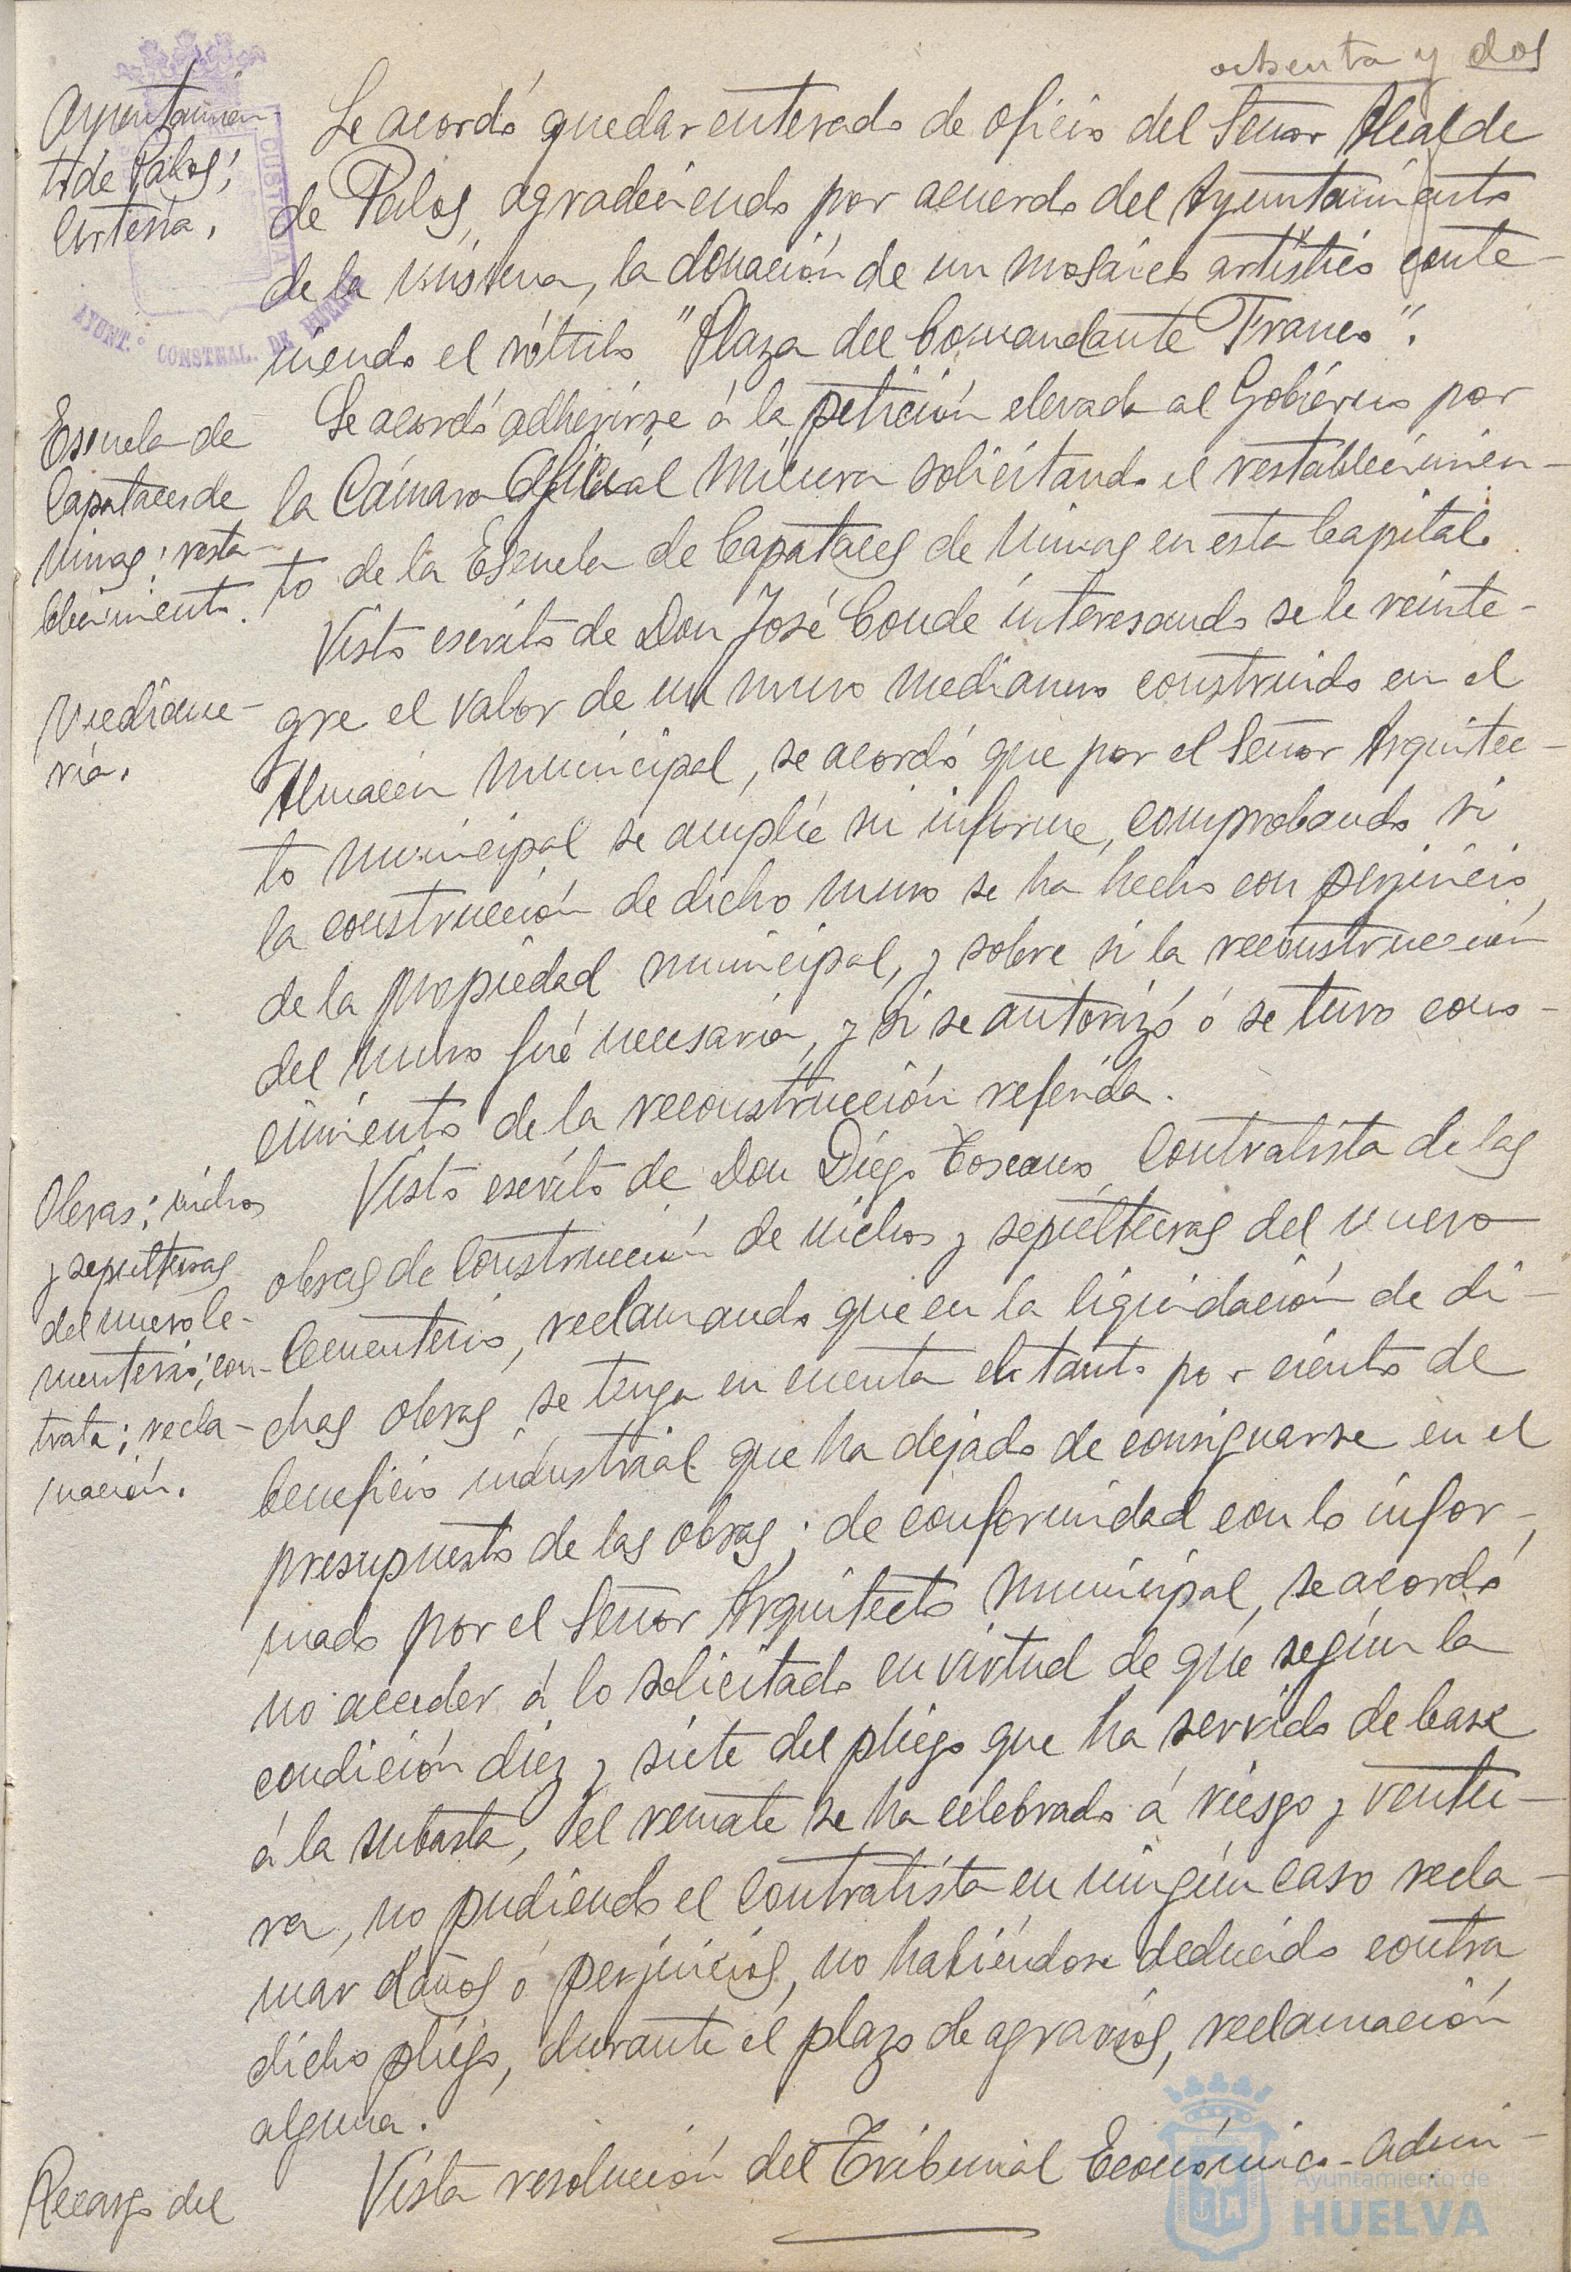 ochenta y dos
Ayuntamien-
to de Palos;
Cortesía.
Se acordó quedar enterado de oficio del Señor Alcalde
de Palos, agradeciendo por acuerdo del Ayuntamiento
de la misma, la donación de un mosáico artístico conte-
niendo el rótulo "Plaza del Comandante Franco".
Escuela de
Capataces de
Minas; resta-
blecimiento.
Se acordó adherirse á la petición elevada al Gobierno por
la Cámara Oficial Minera solicitando el restablecimien-
to de la Escuela de Capataces de Minas en esta Capital.
Mediane-
ría.
Visto escrito de Don José Conde interesando se le reinte-
gre el valor de un muro medianero construido en el
Almacén Municipal, se acordó que por el Señor Arquitec-
to Municipal se amplíe su informe, comprobando si
la construcción de dicho muro se ha hecho con perjuicio
de la propiedad municipal, y sobre si la reconstrucción
del muro fué necesaria, y si se autorizó ó se tuvo cono-
cimiento de la reconstrucción referida.
Obras; nichos
y sepulturas
del nuevo Ce-
menterio; con-
trata; recla-
mación.
Visto escrito de Don Diego Toscano, Contratista de las
obras de construcción de nichos y sepulturas del nuevo
Cementerio, reclamando que en la liquidación de di-
chas obras se tenga en cuenta el tanto por ciento de
beneficio industrial que ha dejado de consignarse en el
presupuesto de las obras; de conformidad con lo infor-
mado por el Señor Arquitecto Municipal, se acordó
no acceder á lo solicitado en virtud de que según la
condición diez y siete del pliego que ha servido de base
á la subasta, el remate se ha celebrado á riesgo y ventu-
ra, no pudiendo el contratista en ningún caso recla-
mar daños ó perjuicios, no habiéndose deducido contra
dicho pliego, durante el plazo de agravios, reclamación
alguna.
Recargo del
Vista resolución del Tribunal Económico-Admi-
AYUNT.º CONSTNAL. DE HUELVA
CUSTODIA
Ayuntamiento de
HUELVA